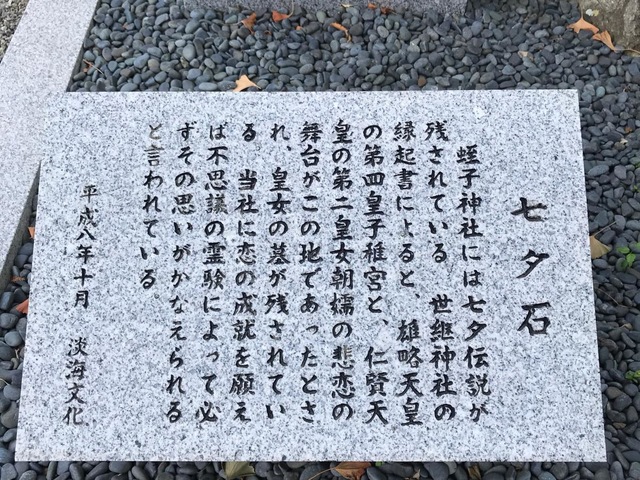 七夕石
蛭子神社には七夕伝説が
残されている　世継神社の
縁起書によると、雄略天皇
の第四皇子稚宮と、仁賢天
皇の第二皇女朝嬬の悲恋の
舞台がこの地であったとさ
れ、皇女の墓が残されてい
る　当社に恋の成就を願え
ば不思議の霊験によって必
ずその思いがかなえられる
と言われている。
平成八年十月　淡海文化